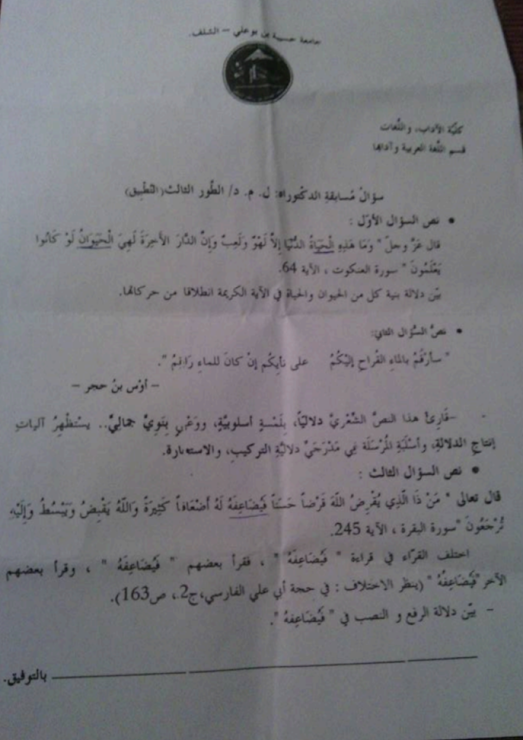 جامعة حسيبة بن بوعلي – الشلف.
كليّة الآداب، واللّغات
قسم اللّغة العربية وآدابها
سؤالُ مُسابقةِ الدكتوراه: ل. م. د/ الطّور الثالث(التّطبيق)
• نص السؤال الأوّل :
قال عَزَّ وجلّ " وَمَا هَذِهِ الْحَيَاةُ الدُّنْيَا إِلاَّ لَهْوٌ وَلَعِبٌ وَإِنَّ الدَّارَ الآخِرَةَ لَهِيَ الْحَيَوَانُ لَوْ كَانُوا
يَعْلَمُونَ " سورة العنكبوت ، الآية 64.
بيّن دلالة بنية كل من الحيوان والحياة في الآية الكريمة انطلاقا من حركاتها.
• نصّ السّؤال الثاني:
" سأرقُمُ بالماءِ القُراحِ إليْكُمُ على نأيِكُم إنْ كانَ للماءِ رَاقِمُ ".
– أوْس بنُ حجر –
- –قَارِئْ هذا النصَّ الشّعْريَّ دلاليّاً، بِلَمْسَةٍ أسلوبيَّةٍ، ووَعْيٍ بِنَويٍّ جماليٍّ.. يسْتظهِرُ آلياتِ
إنتاجِ الدلالةِ، وأسْلَبَةِ الْمُرْسَلَة فِي مَدْرَجَيْ دلاليَّةِ التركيبِ، والاستعارة.
• نص السؤال الثالث :
قال تعالى " مَنْ ذَا الَّذِي يُقْرِضُ اللَّهَ قَرْضاً حَسَناً فَيُضَاعِفَهُ لَهُ أَضْعَافاً كَثِيرَةً وَاللَّهُ يَقْبِضُ وَيَبْسُطُ وَإِلَيْهِ
تُرْجَعُونَ "سورة البقرة ، الآية 245.
اختلف القرّاء في قراءة " فَيُضَاعِفَهُ " ، فقرأ بعضهم " فَيُضَاعِفَهُ " ، وقرأ بعضهم
الآخر"فَيُضَاعِفُهُ " (ينظر الاختلاف : في حجة أبي علي الفارسي،ج2.، ص163).
– بيّن دلالة الرفع و النصب في " فَيُضَاعِفهُ ".
بالتوفيق.